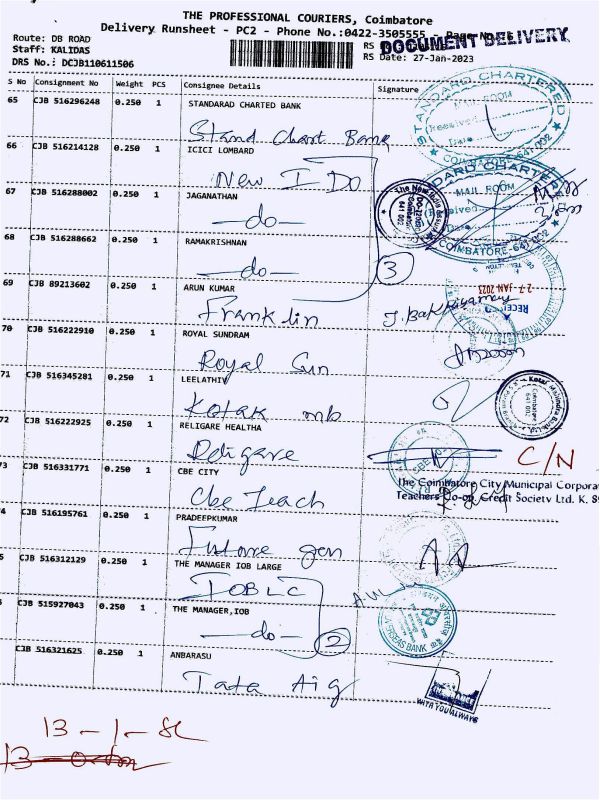 THE PROFESSIONAL COURIERS, Coimbatore
Delivery Runsheet - PC2 - Phone No.:0422-3505555 - Page No.
DOCUMENT DELIVERY
Route: DB ROAD
Staff: KALIDAS
DRS No.: DCJB110611506
RS Date: 27-Jan-2023
S No Consignment No Weight PCS Consignee Details Signature
65 CJB 516296248 0.250 1 STANDARAD CHARTED BANK
Stand Chart Bank
66 CJB 516214128 0.250 1 ICICI LOMBARD
New I DO
67 CJB 516288002 0.250 1 JAGANATHAN
—do—
68 CJB 516288662 0.250 1 RAMAKRISHNAN
—do—
3
69 CJB 89213602 0.250 1 ARUN KUMAR
Franklin
70 CJB 516222910 0.250 1 ROYAL SUNDRAM
Royal Sun
71 CJB 516345281 0.250 1 LEELATHIV
Kotak mb
72 CJB 516222925 0.250 1 RELIGARE HEALTHA
Religare
C/N
73 CJB 516331771 0.250 1 CBE CITY
Cbe Teach
The Coimbatore City Municipal Corpora
Teachers Co-op. Credit Society Ltd. K. 89
CJB 516195761 0.250 1 PRADEEPKUMAR
Future gen
CJB 516312129 0.250 1 THE MANAGER IOB LARGE
IOB LC
CJB 515927043 0.250 1 THE MANAGER,IOB
—do—
2
CJB 516321625 0.250 1 ANBARASU
Tata Aig
WITH YOU ALWAYS
STANDARD CHARTERED
MAIL ROOM
Received
Date
COIMBATORE-641 002
MAIL ROOM
Received
Date
COIMBATORE-641 002
27 JAN 2023
Kotak Mahindra Bank Ltd.
Coimbatore
641 002
OVERSEAS BANK